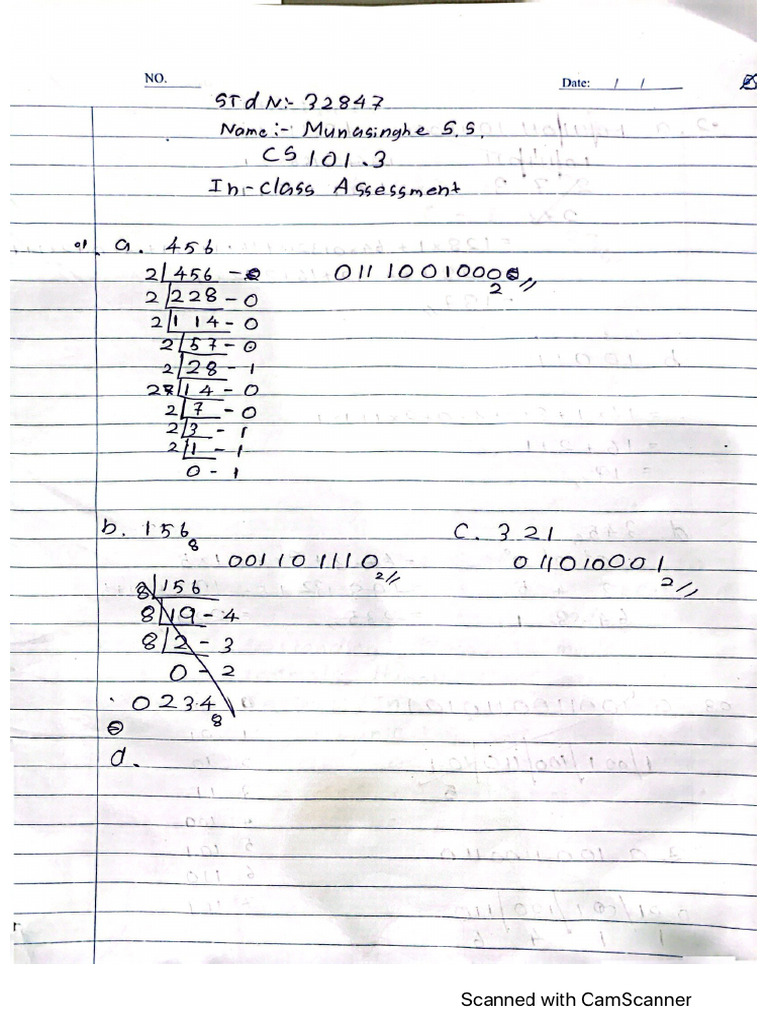 NO.
Date: / /
STd N:- 32847
Name:- Munasinghe S.S.
CS 101.3
In-class Assessment
a. 456
2 456 - 0 0111001000
2
2 228 - 0
2 114 - 0
2 57 - 0
2 28 - 1
2 14 - 0
2 7 - 0
2 3 - 1
2 1 - 1
0 - 1
b. 156 8 C. 321
001101110 2 011010001 2
8 156
8 19 - 4
8 2 - 3
0 - 2
0234 8
d.
Scanned with CamScanner